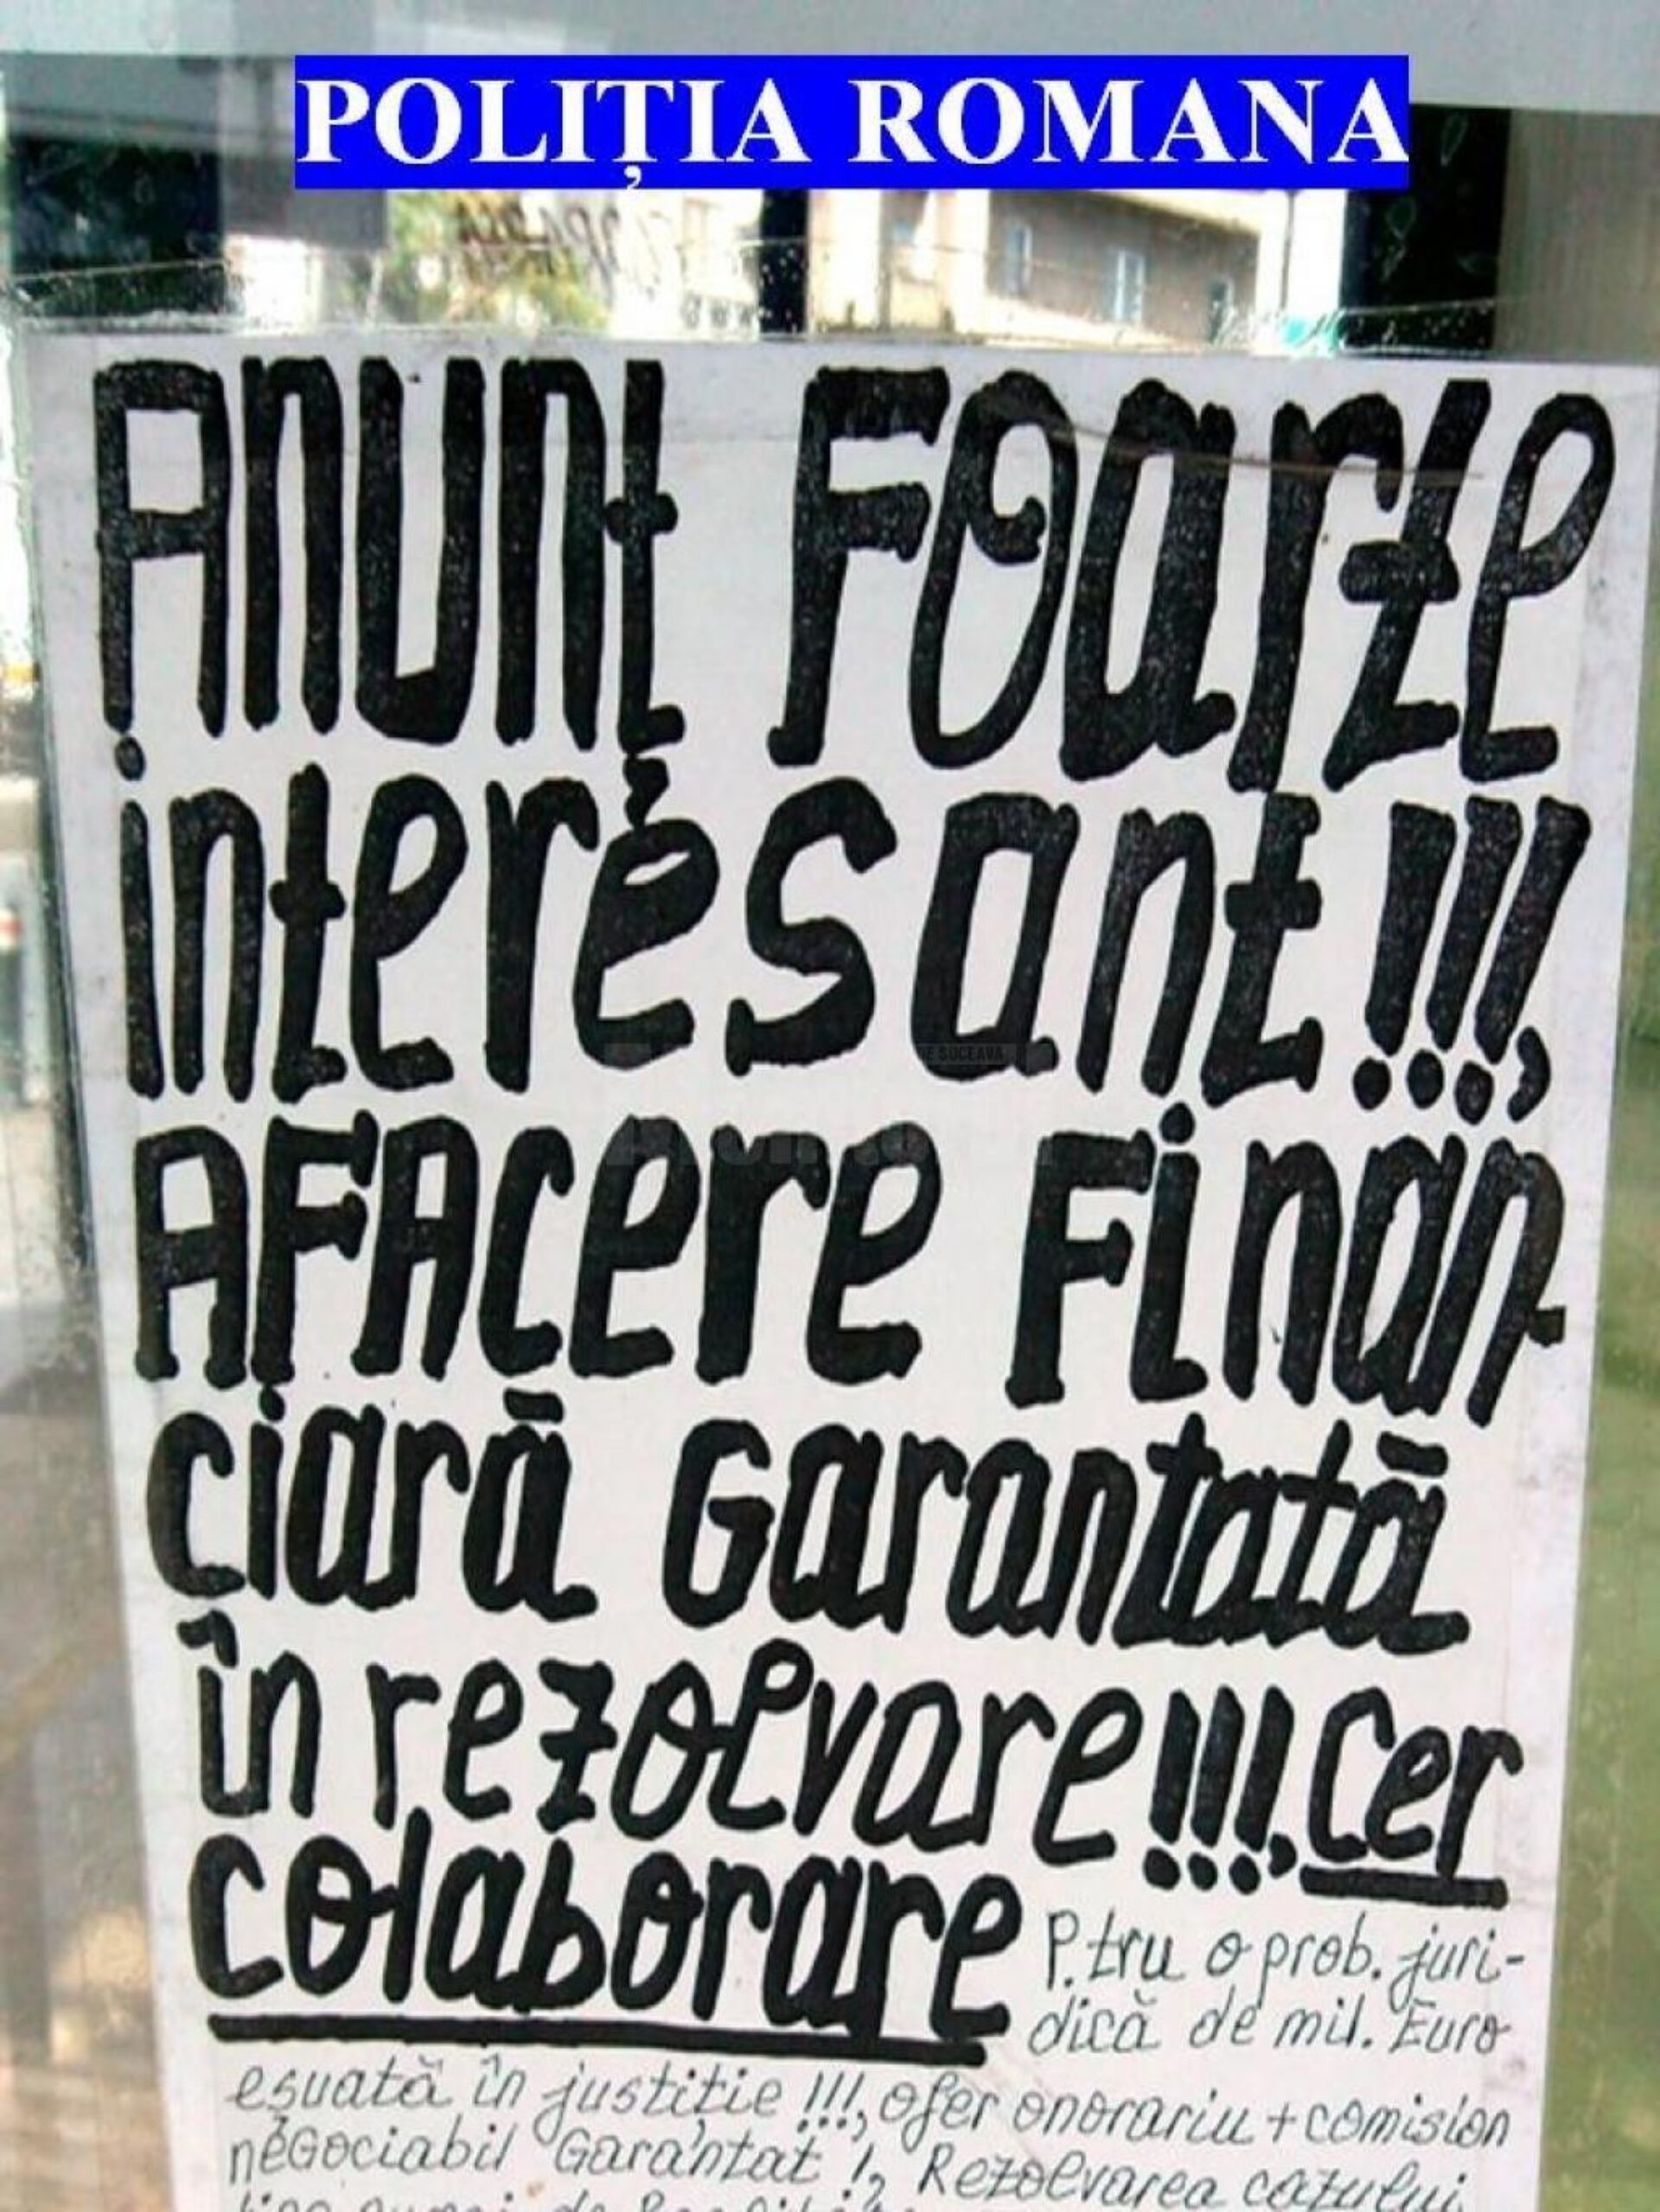 POLIȚIA ROMANA
Anunț Foarte
interesant!!!,
AFAcere Finan-
ciară Garantată
în rezolvare!!!, Cer
colaborare P.tru o prob. juri-
dică de mil. Euro
eșuată în justiție !!!, ofer onorariu + comision
neGociabil Garantat !, Rezolvarea cazului
SUCEAVA